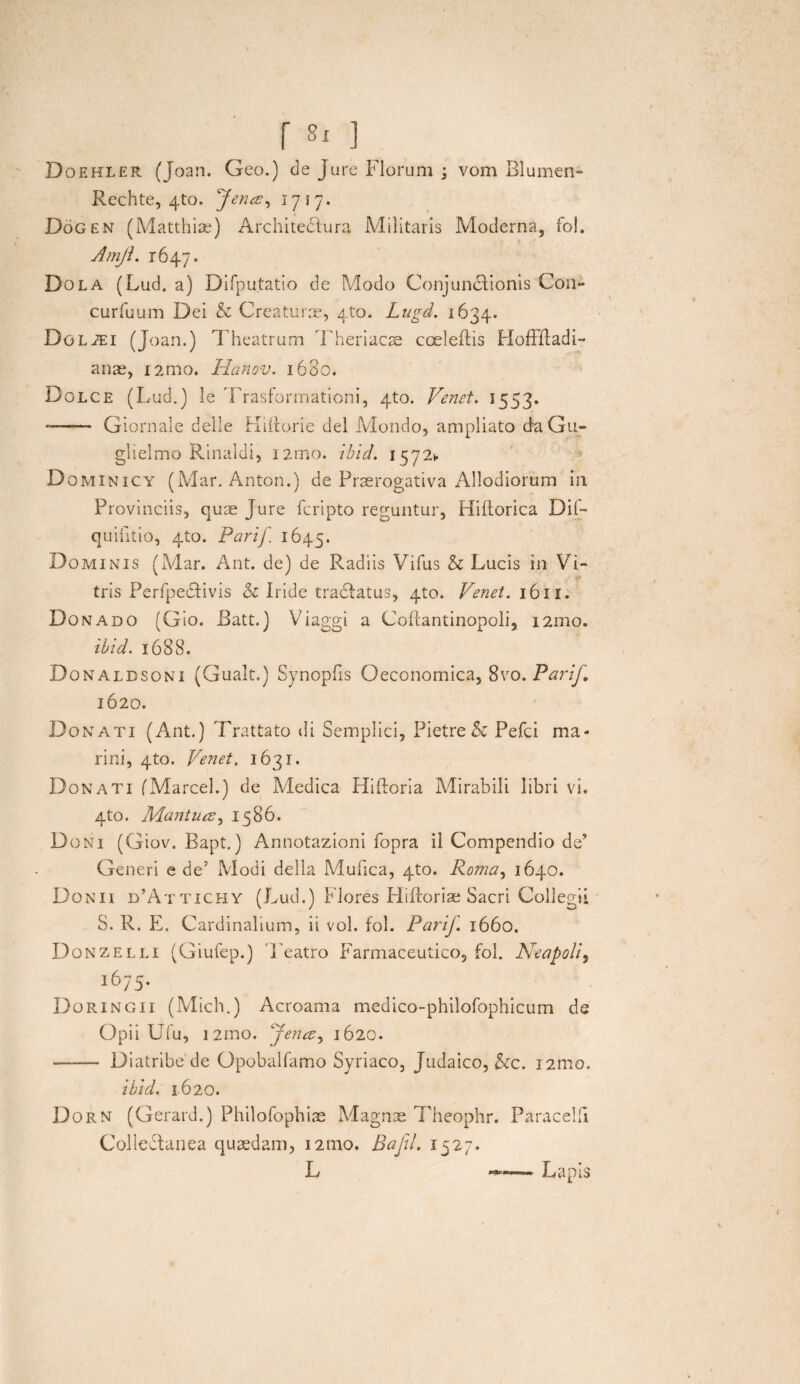 [ 81 ]
Doehler (Joan. Geo.) de Jure Florum ; vom Blumen-
Rechte, 4to. Jenæ, 1717.
Dögen (Matthiæ) Architectura Militaris Moderna, fol.
Amſt. 1647.
Dola (Lud. a) Diſputatio de Modo Conjunctionis Con-
curſuum Dei & Creaturæ, 4to. Lugd. 1634.
Dolæi (Joan.) Theatrum Theriacæ cœleſtis Hoffſtadi-
anæ, 12mo. Hanov. 1680.
Dolce (Lud.) le Trasformationi, 4to. Venet. 1553.
—— Giornale delle Hiſtorie del Mondo, ampliato da Gu-
glielmo Rinaldi, 12mo. ibid. 1572.
Dominicy (Mar. Anton.) de Prærogativa Allodiorum in
Provinciis, quæ Jure ſcripto reguntur, Hiſtorica Diſ-
quiſitio, 4to. Pariſ. 1645.
Dominis (Mar. Ant. de) de Radiis Viſus & Lucis in Vi-
tris Perſpectivis & Iride tractatus, 4to. Venet. 1611.
Donado (Gio. Batt.) Viaggi a Coſtantinopoli, 12mo.
ibid. 1688.
Donaldsoni (Gualt.) Synopſis Oeconomica, 8vo. Pariſ.
1620.
Donati (Ant.) Trattato di Semplici, Pietre & Peſci ma-
rini, 4to. Venet. 1631.
Donati (Marcel.) de Medica Hiſtoria Mirabili libri vi.
4to. Mantuæ, 1586.
Doni (Giov. Bapt.) Annotazioni ſopra il Compendio de'
Generi e de' Modi della Muſica, 4to. Roma, 1640.
Donii d'Attichy (Lud.) Flores Hiſtoriæ Sacri Collegii
S. R. E. Cardinalium, ii vol. fol. Pariſ. 1660.
Donzelli (Giuſep.) Teatro Farmaceutico, fol. Neapoli,
1675.
Doringii (Mich.) Acroama medico-philoſophicum de
Opii Uſu, 12mo. Jenæ, 1620.
—— Diatribe de Opobalſamo Syriaco, Judaico, &c. 12mo.
ibid. 1620.
Dorn (Gerard.) Philoſophiæ Magnæ Theophr. Paracelſi
Collectanea quædam, 12mo. Baſil. 1527.
L —— Lapis